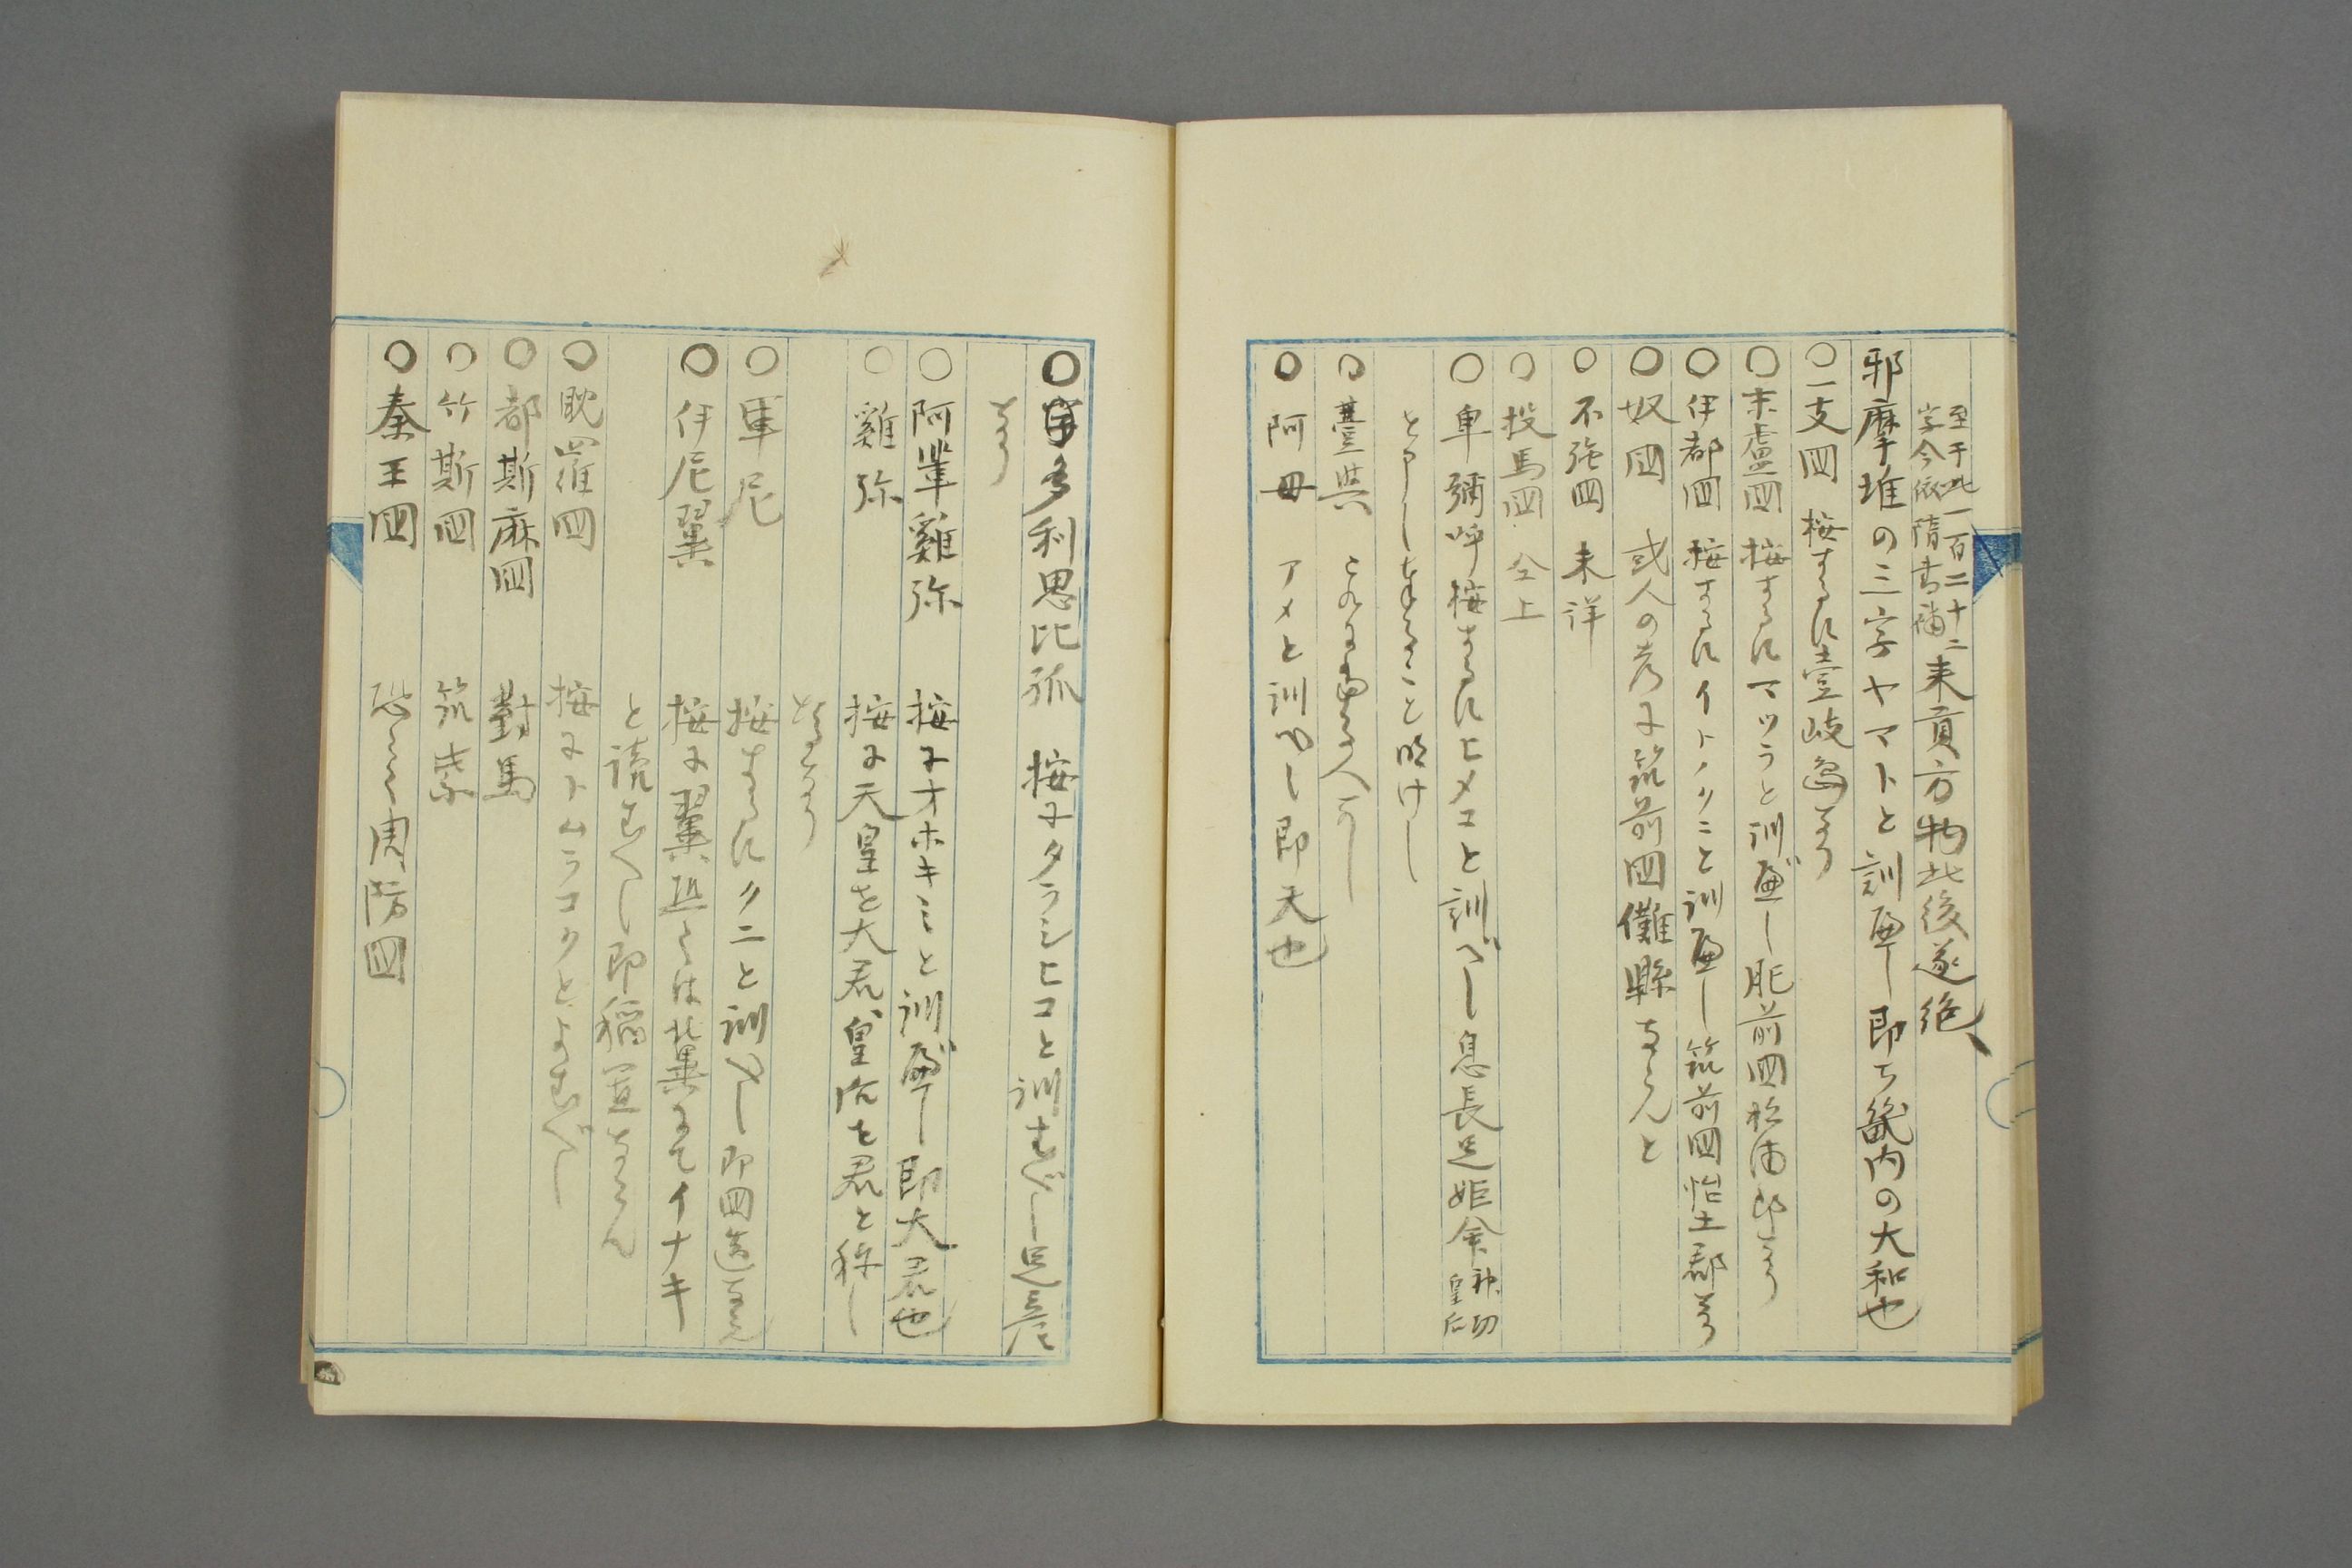 至于此一百二十二
字今依隋書補
来貢方物此後遂絶
邪摩堆の三字ヤマトと訓べし即ち畿内の大和也
○一支国 按するに壹岐島なり
○末盧国 按するにマツラと訓べし肥前国松浦郡なり
○伊都国 按するにイトノクニと訓べし筑前国怡土郡なり
○奴国 或人の考に筑前国儺縣ならんと
○不弥国 未詳
○投馬国 仝上
○卑彌呼 按するにヒメコと訓べし息長足姫命 神功皇后
と申し奉ること明けし
○臺與
○阿毋 アメと訓べし即天也
○多利思比孤 按にタラシヒコと訓むべし足彦
なり
○阿輩雞弥 按にオホキミと訓べし即大君也
○雞弥 按に天皇を大君皇后を君と称し
○軍尼 按するにクニと訓べし即国造ならん
○伊尼翼 按に翼恐くは冀にてイナキ
と読むべし即稲置ならん
○耽羅国 按にトムラコクとよむべし
○都斯麻国 對馬
○竹斯国 筑紫
○秦王国 恐くは周防国